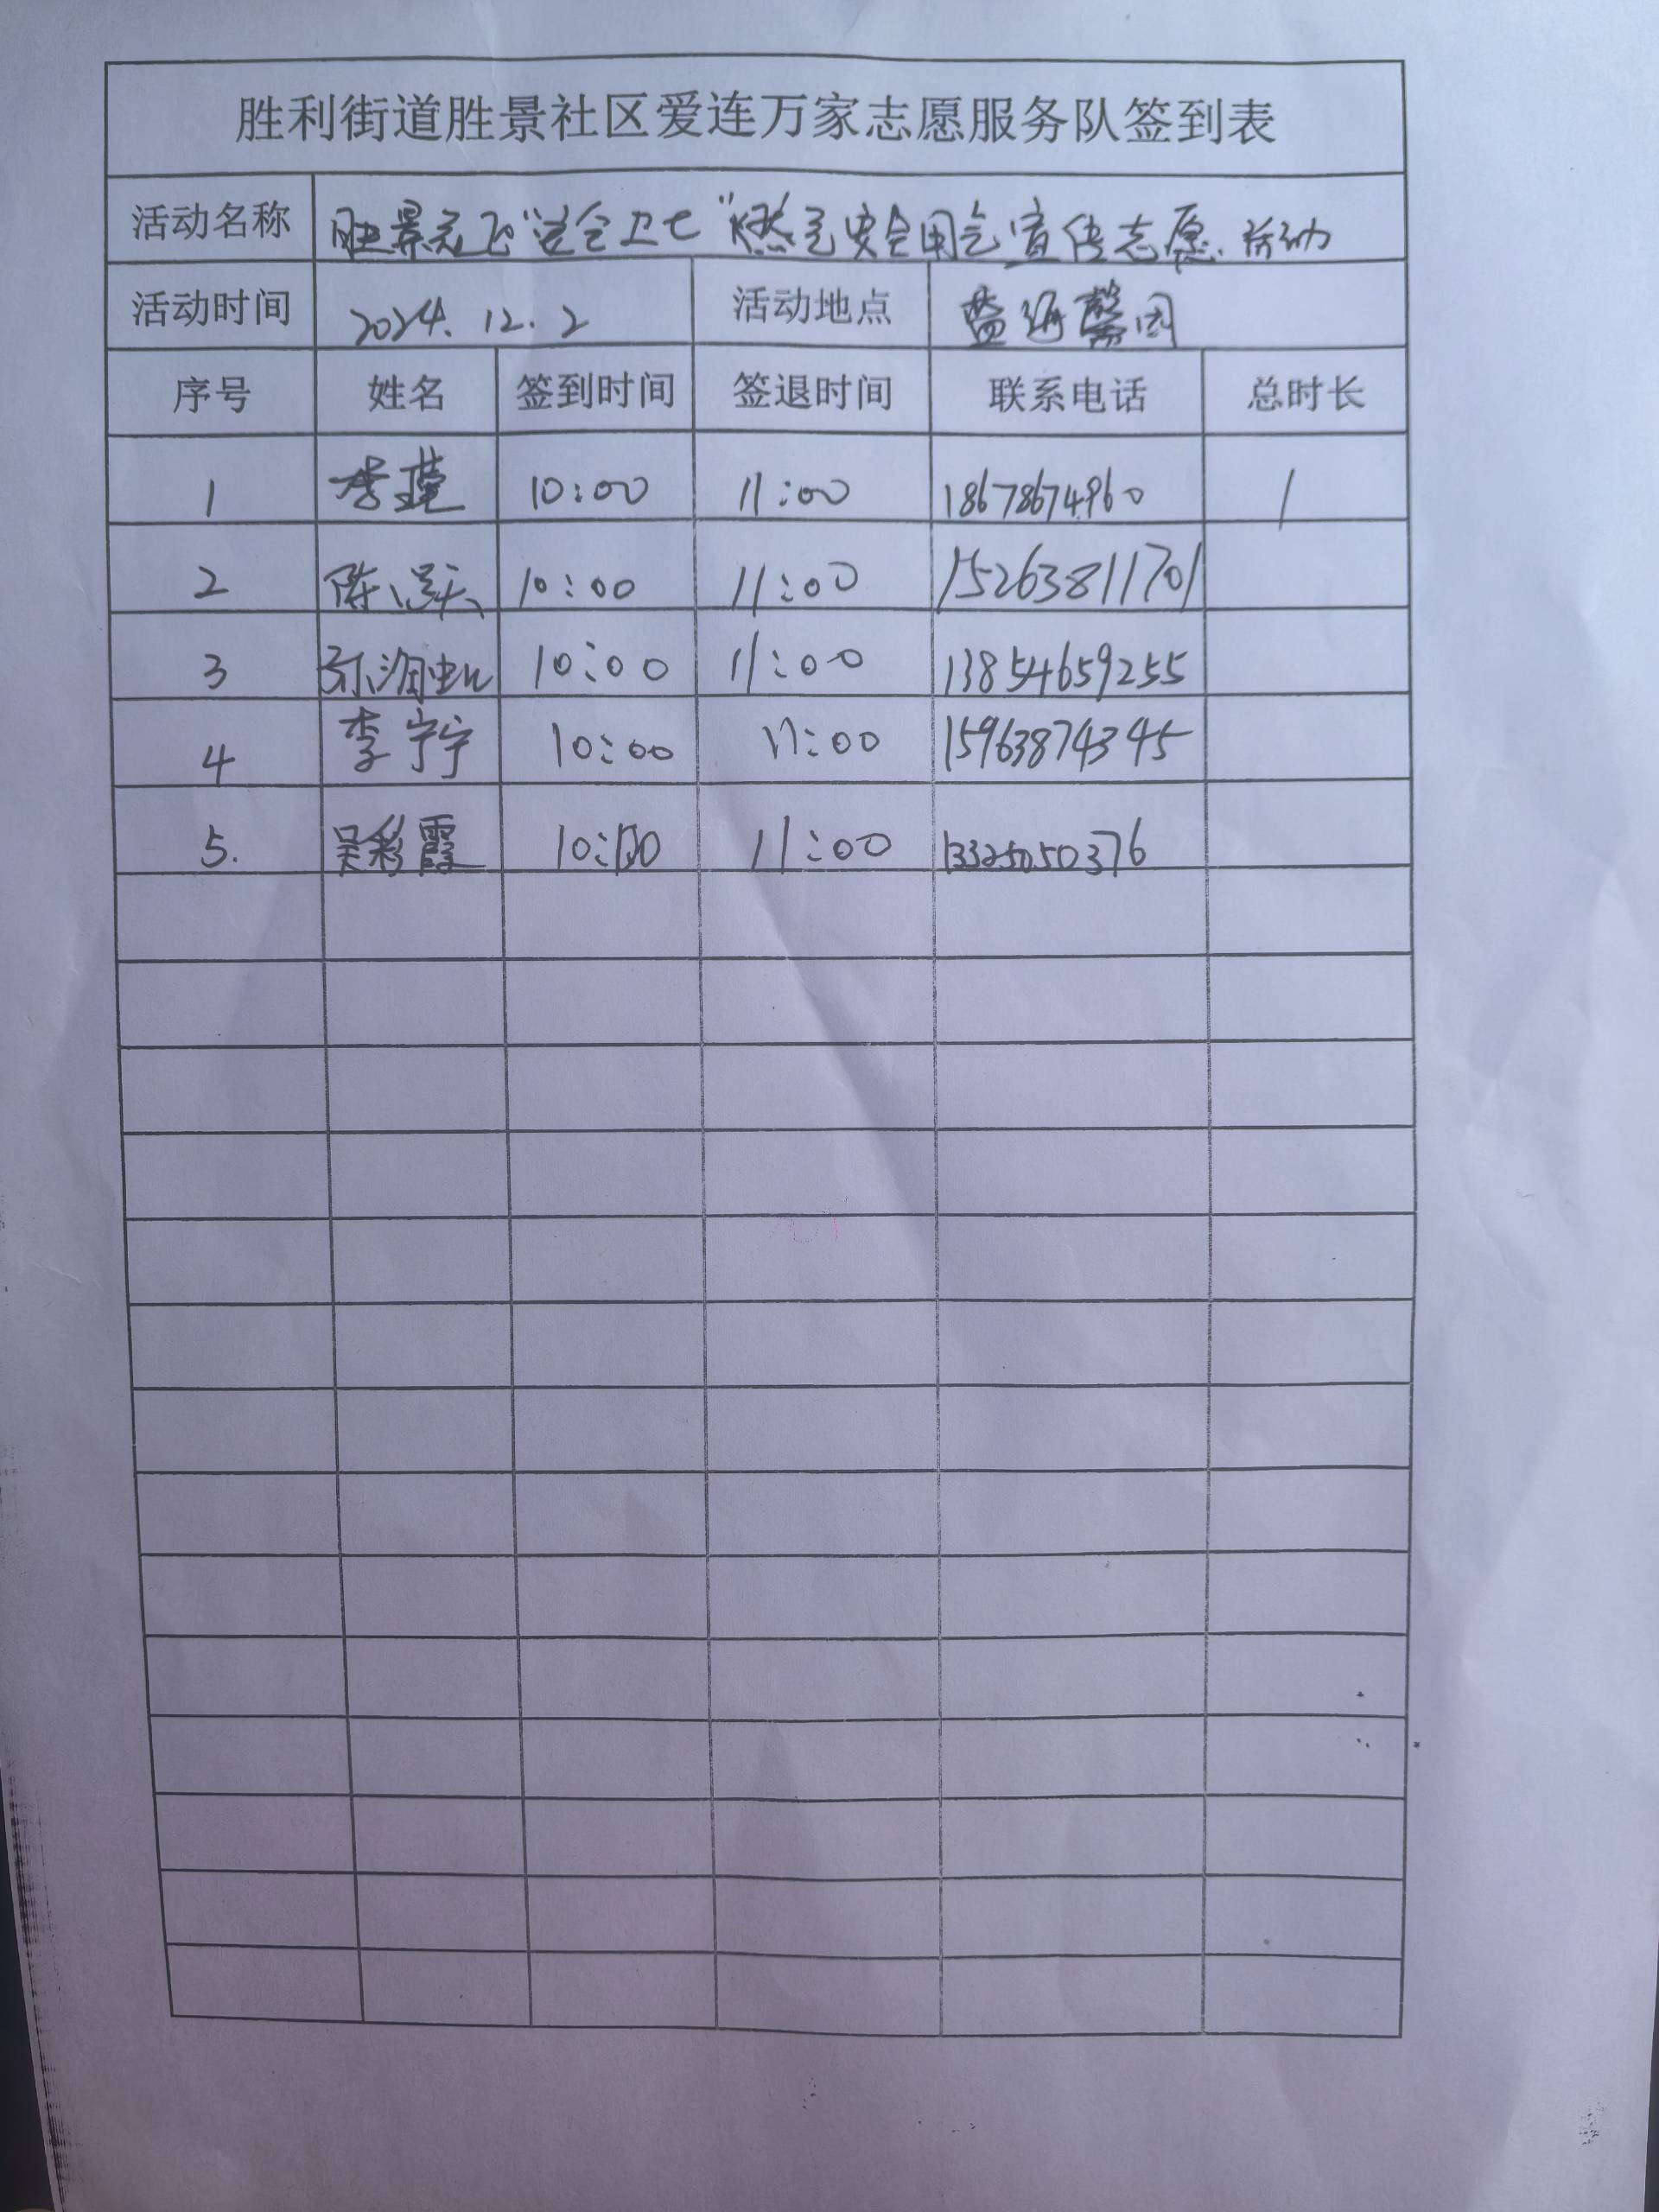 胜利街道胜景社区爱连万家志愿服务队签到表
活动名称 胜景社区"安全卫士"燃气安全用气宣传志愿活动
活动时间 2024.12.2 活动地点 馨园
序号 姓名 签到时间 签退时间 联系电话 总时长
1 李瑾 10:00 11:00 18678674960 1
2 陈 10:00 11:00 15263811701
3 10:00 11:00 13854659255
4 李宁宁 10:00 11:00 15963874345
5. 吴彩霞 10:00 11:00 13325050376